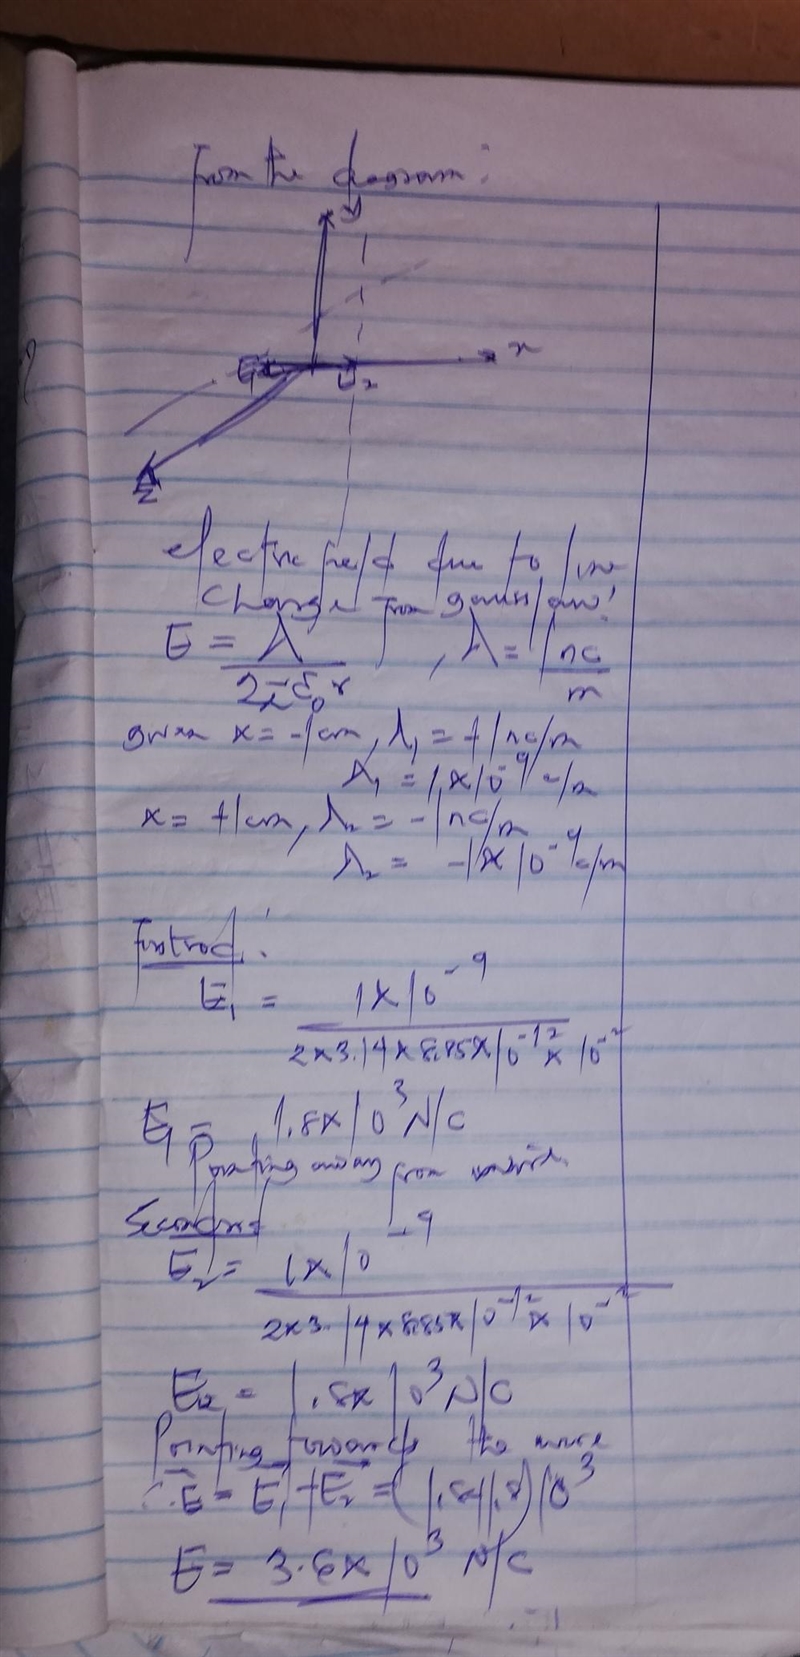 From the diagram:
y
x
E₁ E₂
z
electric field due to line
charge from gauss law:
E = λ / 2πε₀r , λ = 1nc/m
given x = -1cm, λ₁ = +1nc/m
λ₁ = 1x10⁻⁹ c/m
x = +1cm, λ₂ = -1nc/m
λ₂ = -1x10⁻⁹ c/m
First rod:
E₁ = 1x10⁻⁹ / 2x3.14x8.85x10⁻¹² x 10⁻²
E₁ = 1.8x10³ N/C
Pointing away from
Second
E₂ = 1x10⁻⁹ / 2x3.14x8.85x10⁻¹² x 10⁻²
E₂ = 1.8x10³ N/C
Pointing towards the
∴ E = E₁ + E₂ = (1.8+1.8)10³
E = 3.6x10³ N/C